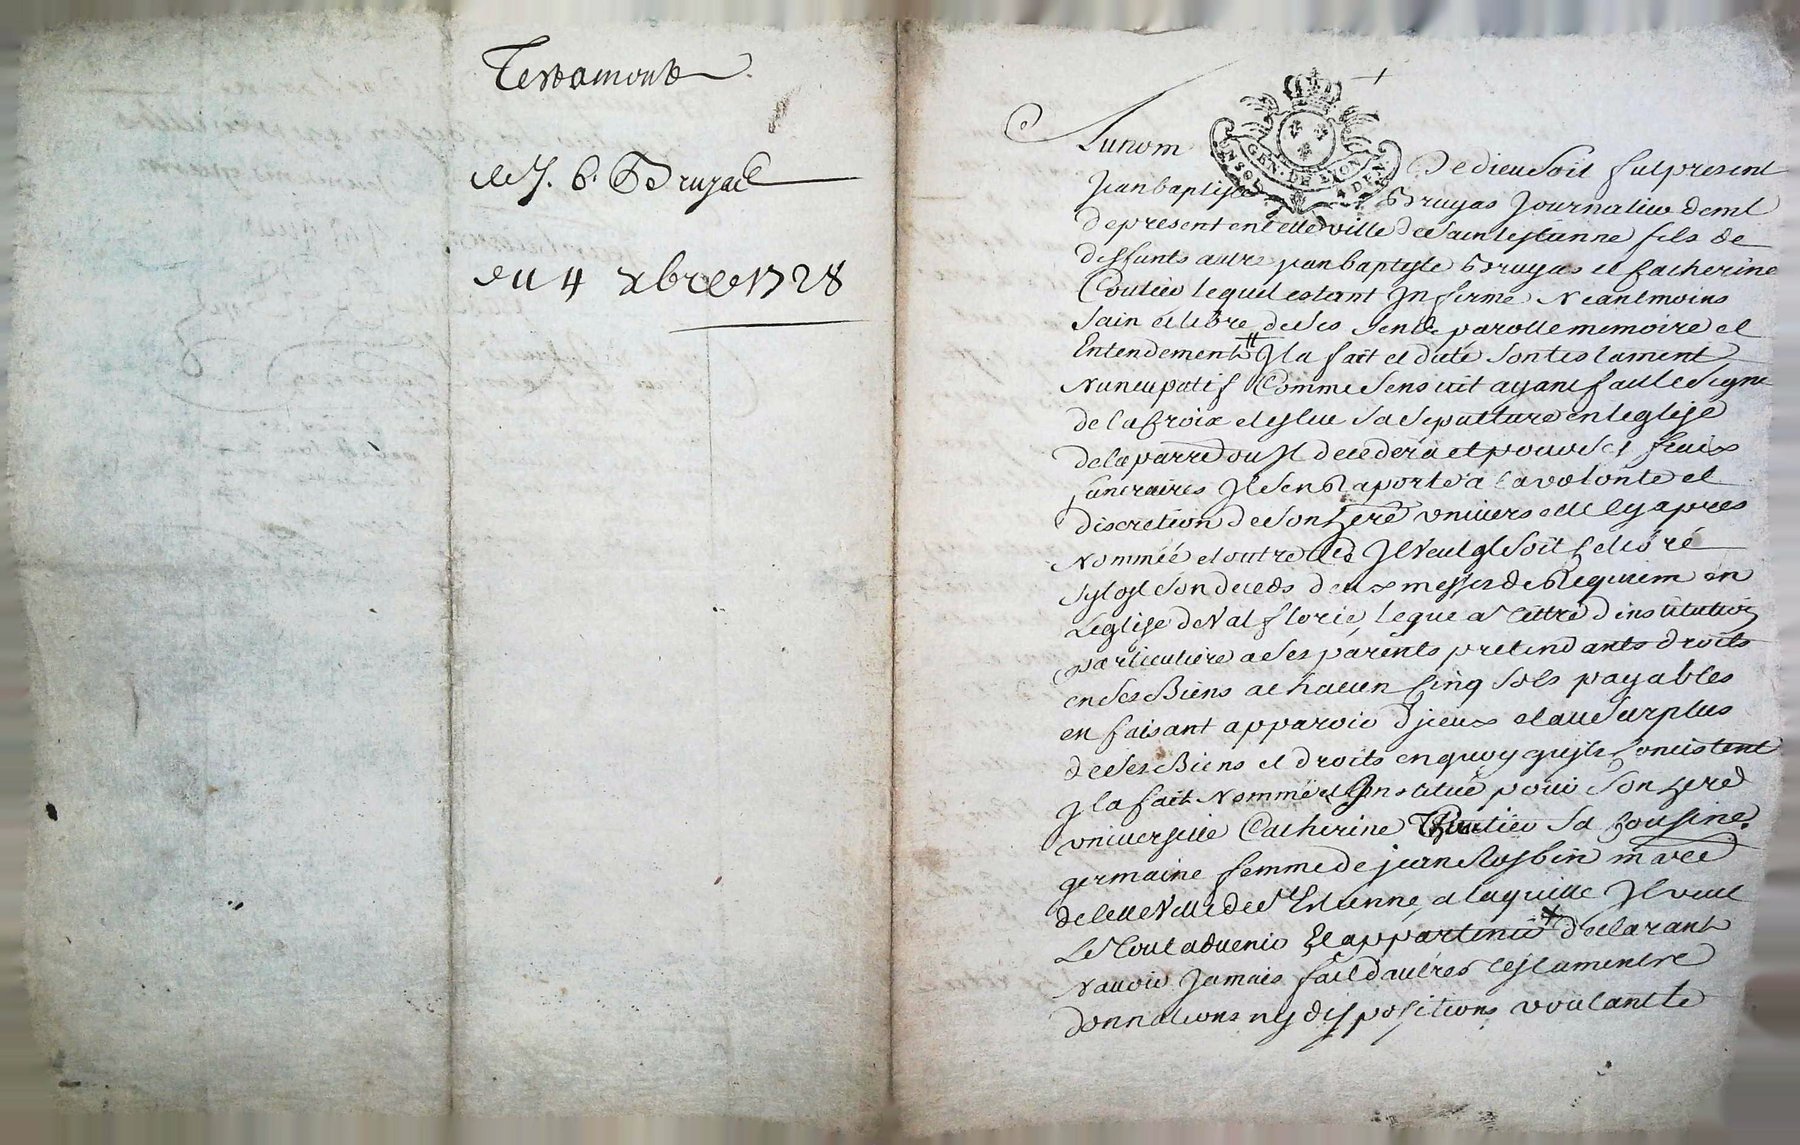 Testament
de J. B. Bruyas
du 4 xbre 1728
GEN. DE LION
Au nom De dieu soit fut present
Jean baptiste Bruyas Journalier deml
de present en cette ville de Saint estienne fils de
deffunts autre jean baptiste Bruyas et Catherine
Coutieu lequel estant Infirme Neantmoins
Sain et libre de ses sens parolle memoire et
Entendement Il a fait et dicté son testament
Nuncupatif Comme sensuit ayant fait le signe
de la Croix et esleu sa sepulture en leglise
de la parre ou Il decedera et pour ses fraix
funeraires Il s'en Raporte a la volonté et
discretion de son here universelle cy apres
Nommée et outre ce Il veut ql soit celebré
sytost son deceds deux messes de Requiem en
Leglise de Valflorie, legue a tittre d'institution
particuliere a ses parents pretendants droits
en ses Biens a chacun Cinq sols payables
en faisant apparoir d'jceux et au surplus
de ses Biens et droits en quoy qu'jls Concistent
Jl a fait Nommé et Institué pour son here
universelle Catherine Coutieu sa Cousine
germaine femme de jean Rosbin m
de cette Ville de St Estienne, a laquelle Jl veut
Le tout advenir et appartenir declarant
N'avoir Jamais fait d'autres testament
donnations ny dispositions voulant le